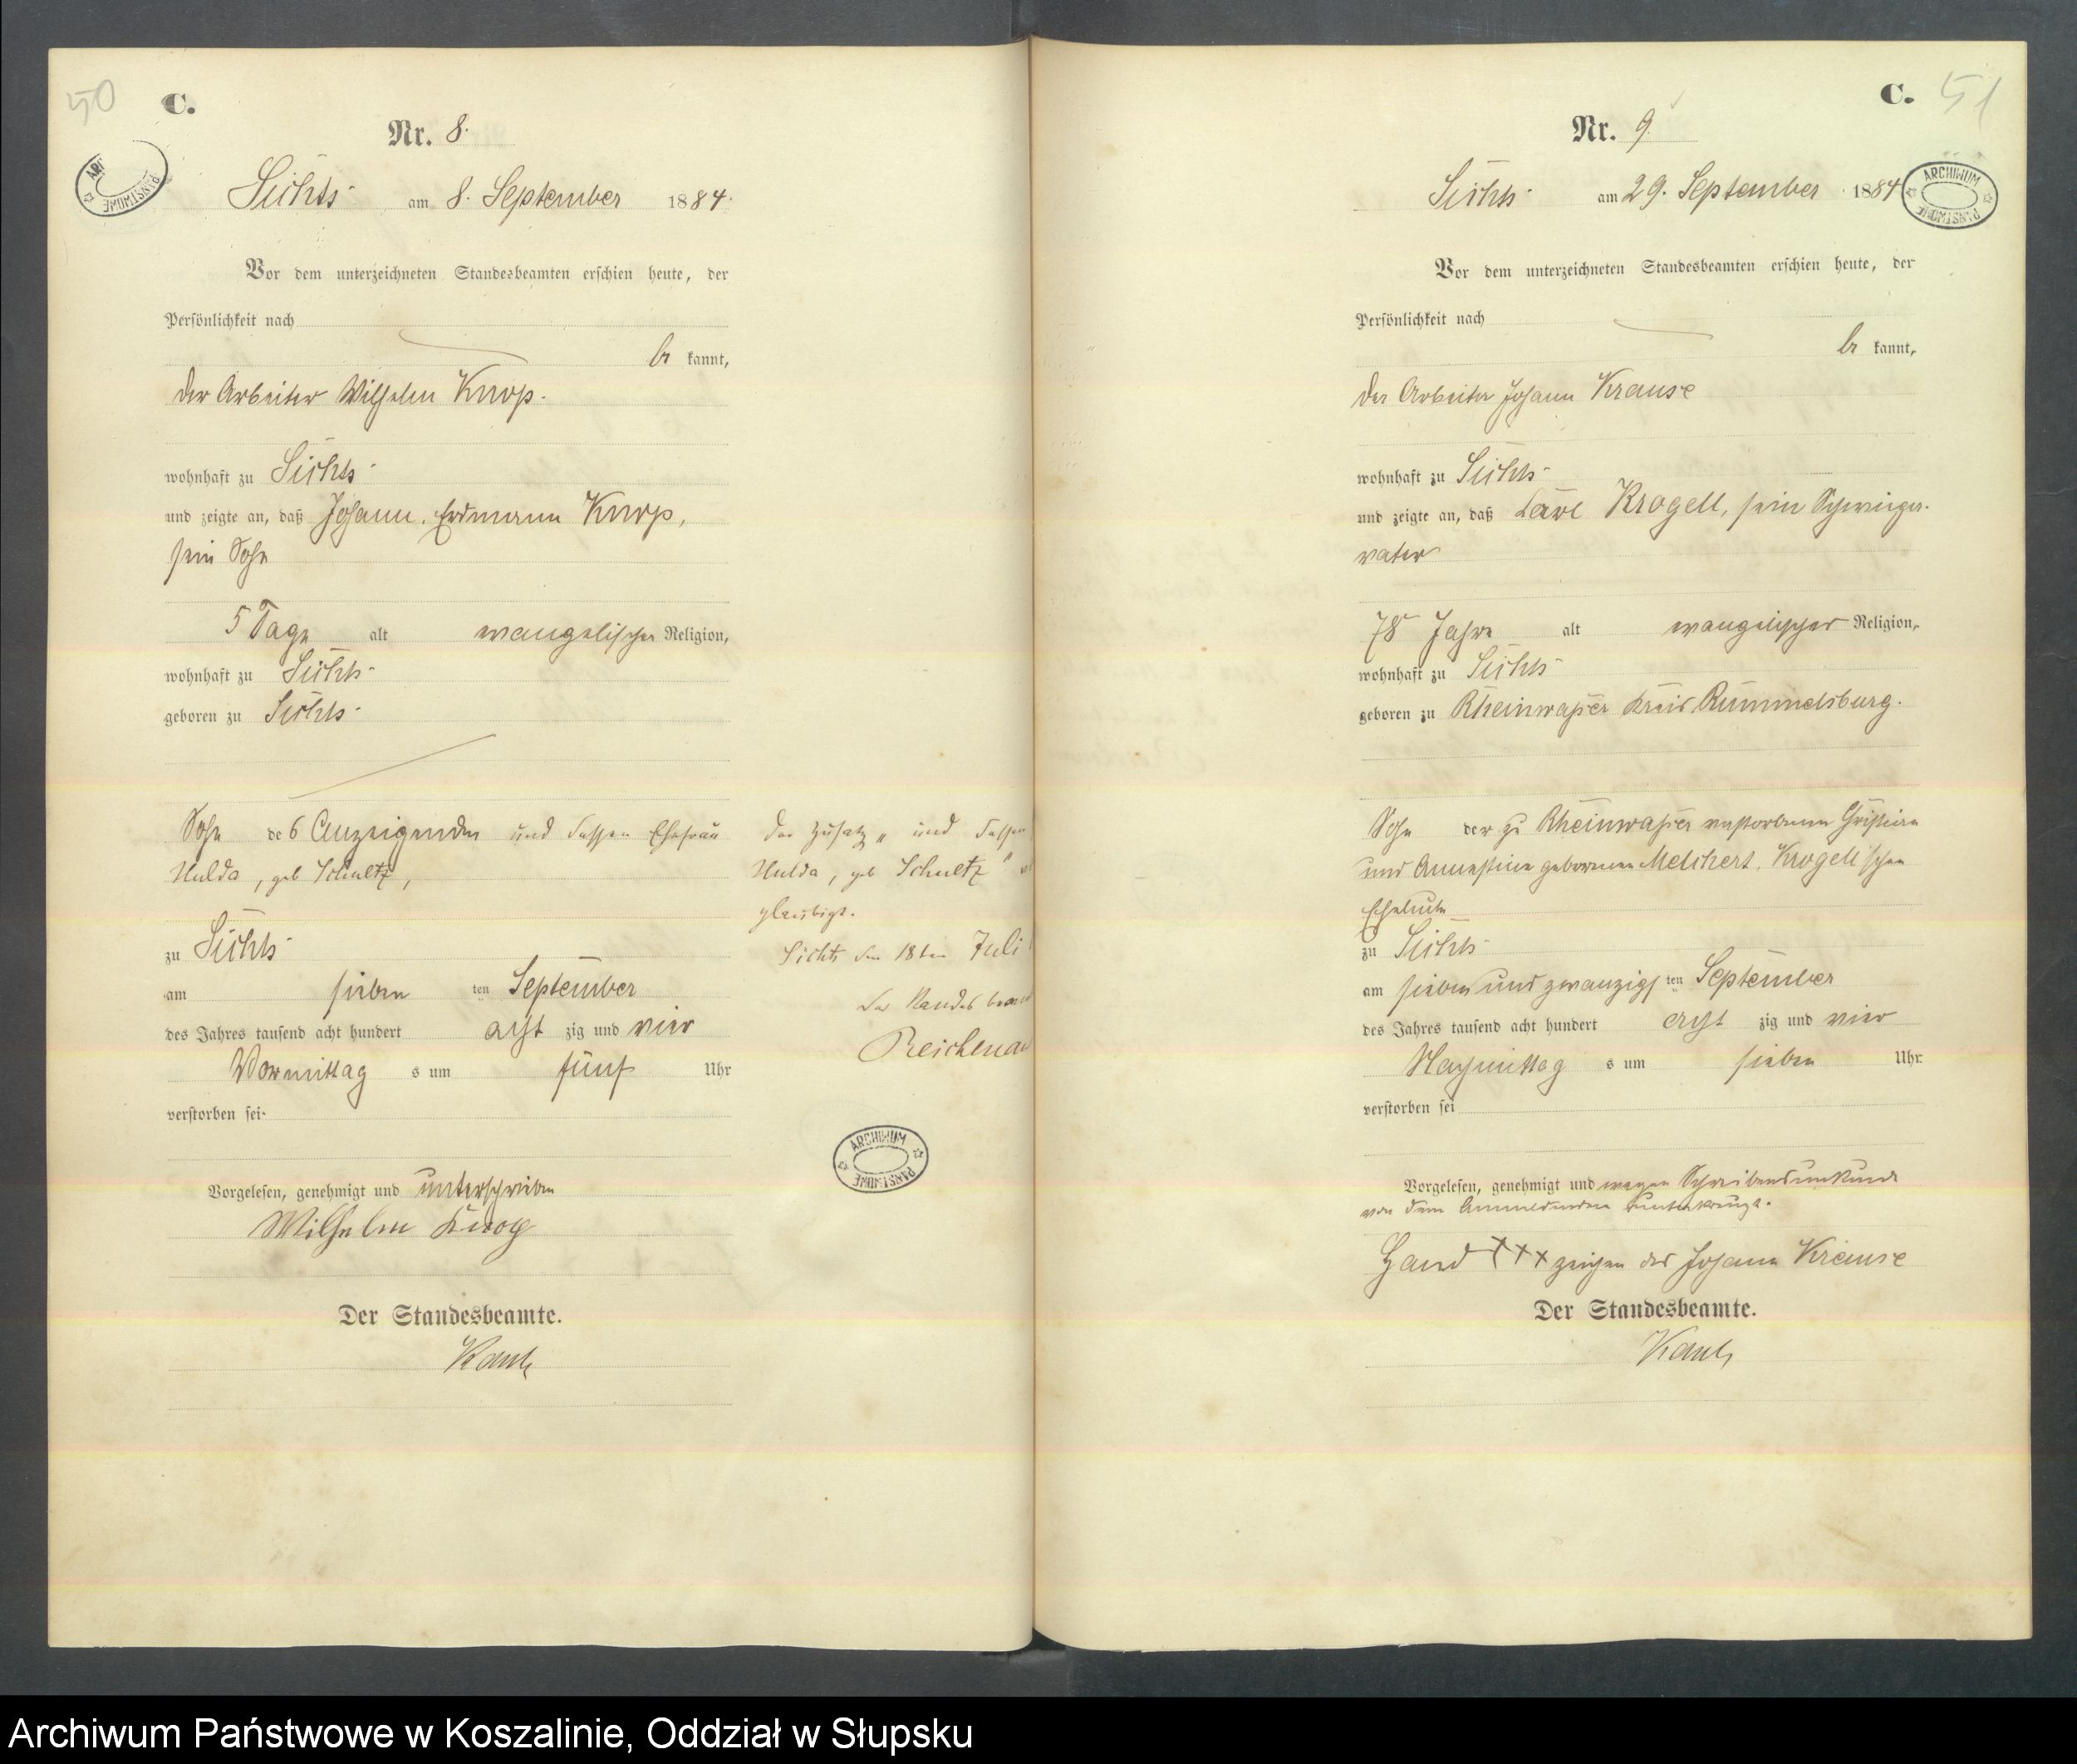 50
C.
Nr. 8.
ARCHIWUM PAŃSTWOWE
Suchts am 8. September 1884.
Vor dem unterzeichneten Standesbeamten erschien heute, der
Persönlichkeit nach
be kannt,
der Arbeiter Wilhelm Knop.
wohnhaft zu
und zeigte an, daß Johann, Erdmann Knop,
sein Sohn
5 Tage alt evangelischer Religion,
wohnhaft zu
geboren zu
Sohn des Anzeigenden und dessen Ehefrau
Hulda, geb Schultz,
zu
am sieben ten September
des Jahres tausend acht hundert acht zig und vier
Vormittag s um fünf Uhr
verstorben sei.
Vorgelesen, genehmigt und unterschrieben
Wilhelm Knop
Der Standesbeamte.
Der Zusatz „und dessen
Hulda, geb Schultz"
glaubigt.
den 18ten Juli
Der Standesbeam
Reichenau
ARCHIWUM PAŃSTWOWE
C. 51
Nr. 9.
am 29. September 1884
ARCHIWUM PAŃSTWOWE
Vor dem unterzeichneten Standesbeamten erschien heute, der
Persönlichkeit nach
be kannt,
der Arbeiter Johann Krause
wohnhaft zu
und zeigte an, daß Carl Krogell, sein Schwieger-
vater
78 Jahre alt evangelischer Religion,
wohnhaft zu
geboren zu Rheinwasser Kreis Rummelsburg.
Sohn der zu Rheinwasser verstorbenen
und geborenen Melchert, Krogellschen
Eheleute
zu
am sieben und zwanzigs ten September
des Jahres tausend acht hundert acht zig und vier
Nachmittag s um sieben Uhr
verstorben sei
Vorgelesen, genehmigt und wegen Schreibensunkunde
von dem Anmeldenden unterkreuzt.
Hand +++ zeichen des Johann Krause
Der Standesbeamte.
Archiwum Państwowe w Koszalinie, Oddział w Słupsku